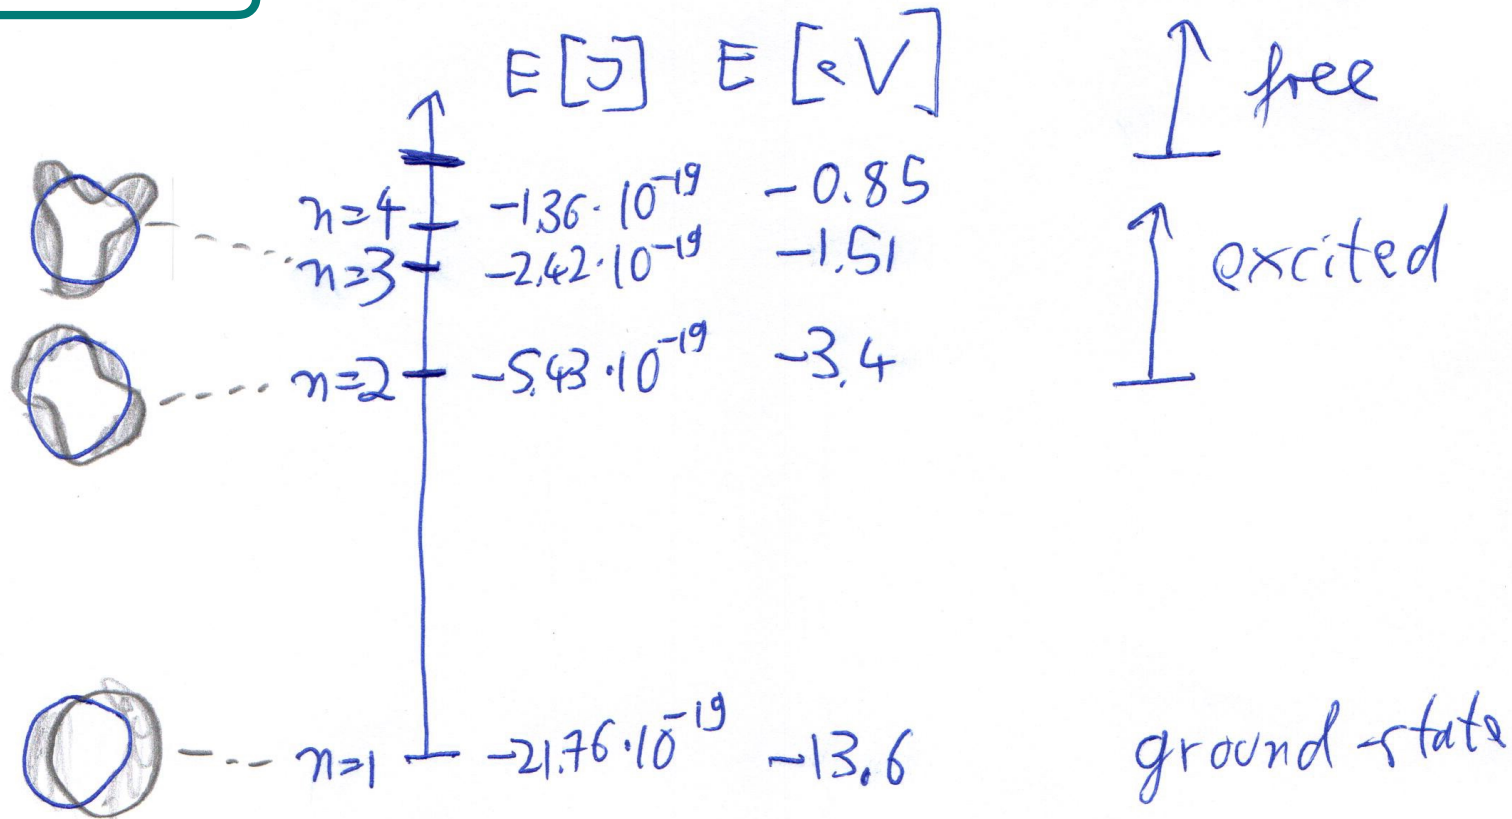 E[J] E [eV]
free
n=4 -1.36·10⁻¹⁹ -0.85
n=3 -2.42·10⁻¹⁹ -1.51
excited
n=2 -5.43·10⁻¹⁹ -3.4
n=1 -21.76·10⁻¹⁹ -13.6
ground-state